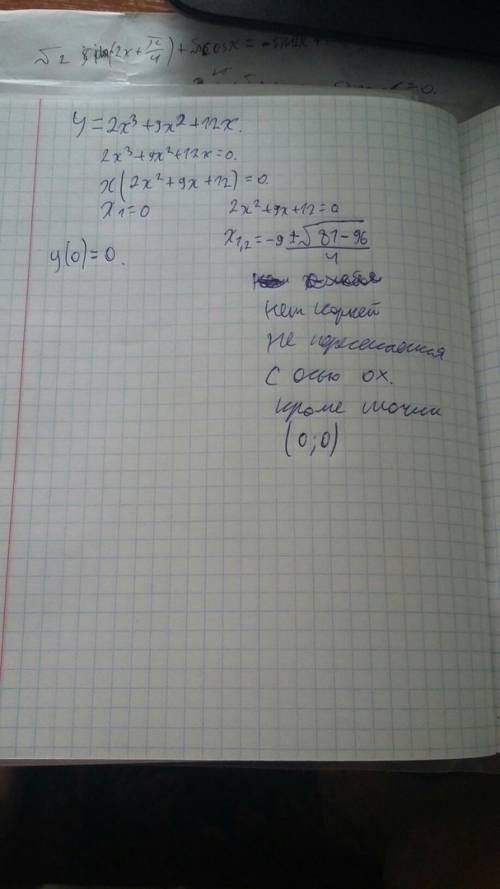 √2 sin(2x + π/4) + √2 cosx =
y = 2x³ + 9x² + 12x.
2x³ + 9x² + 12x = 0.
x(2x² + 9x + 12) = 0.
x₁ = 0
2x² + 9x + 12 = 0
x₁,₂ = -9 ± √81 - 96 / 4
y(0) = 0.
нет корней
не пересекается
с осью ox.
кроме точки
(0; 0)